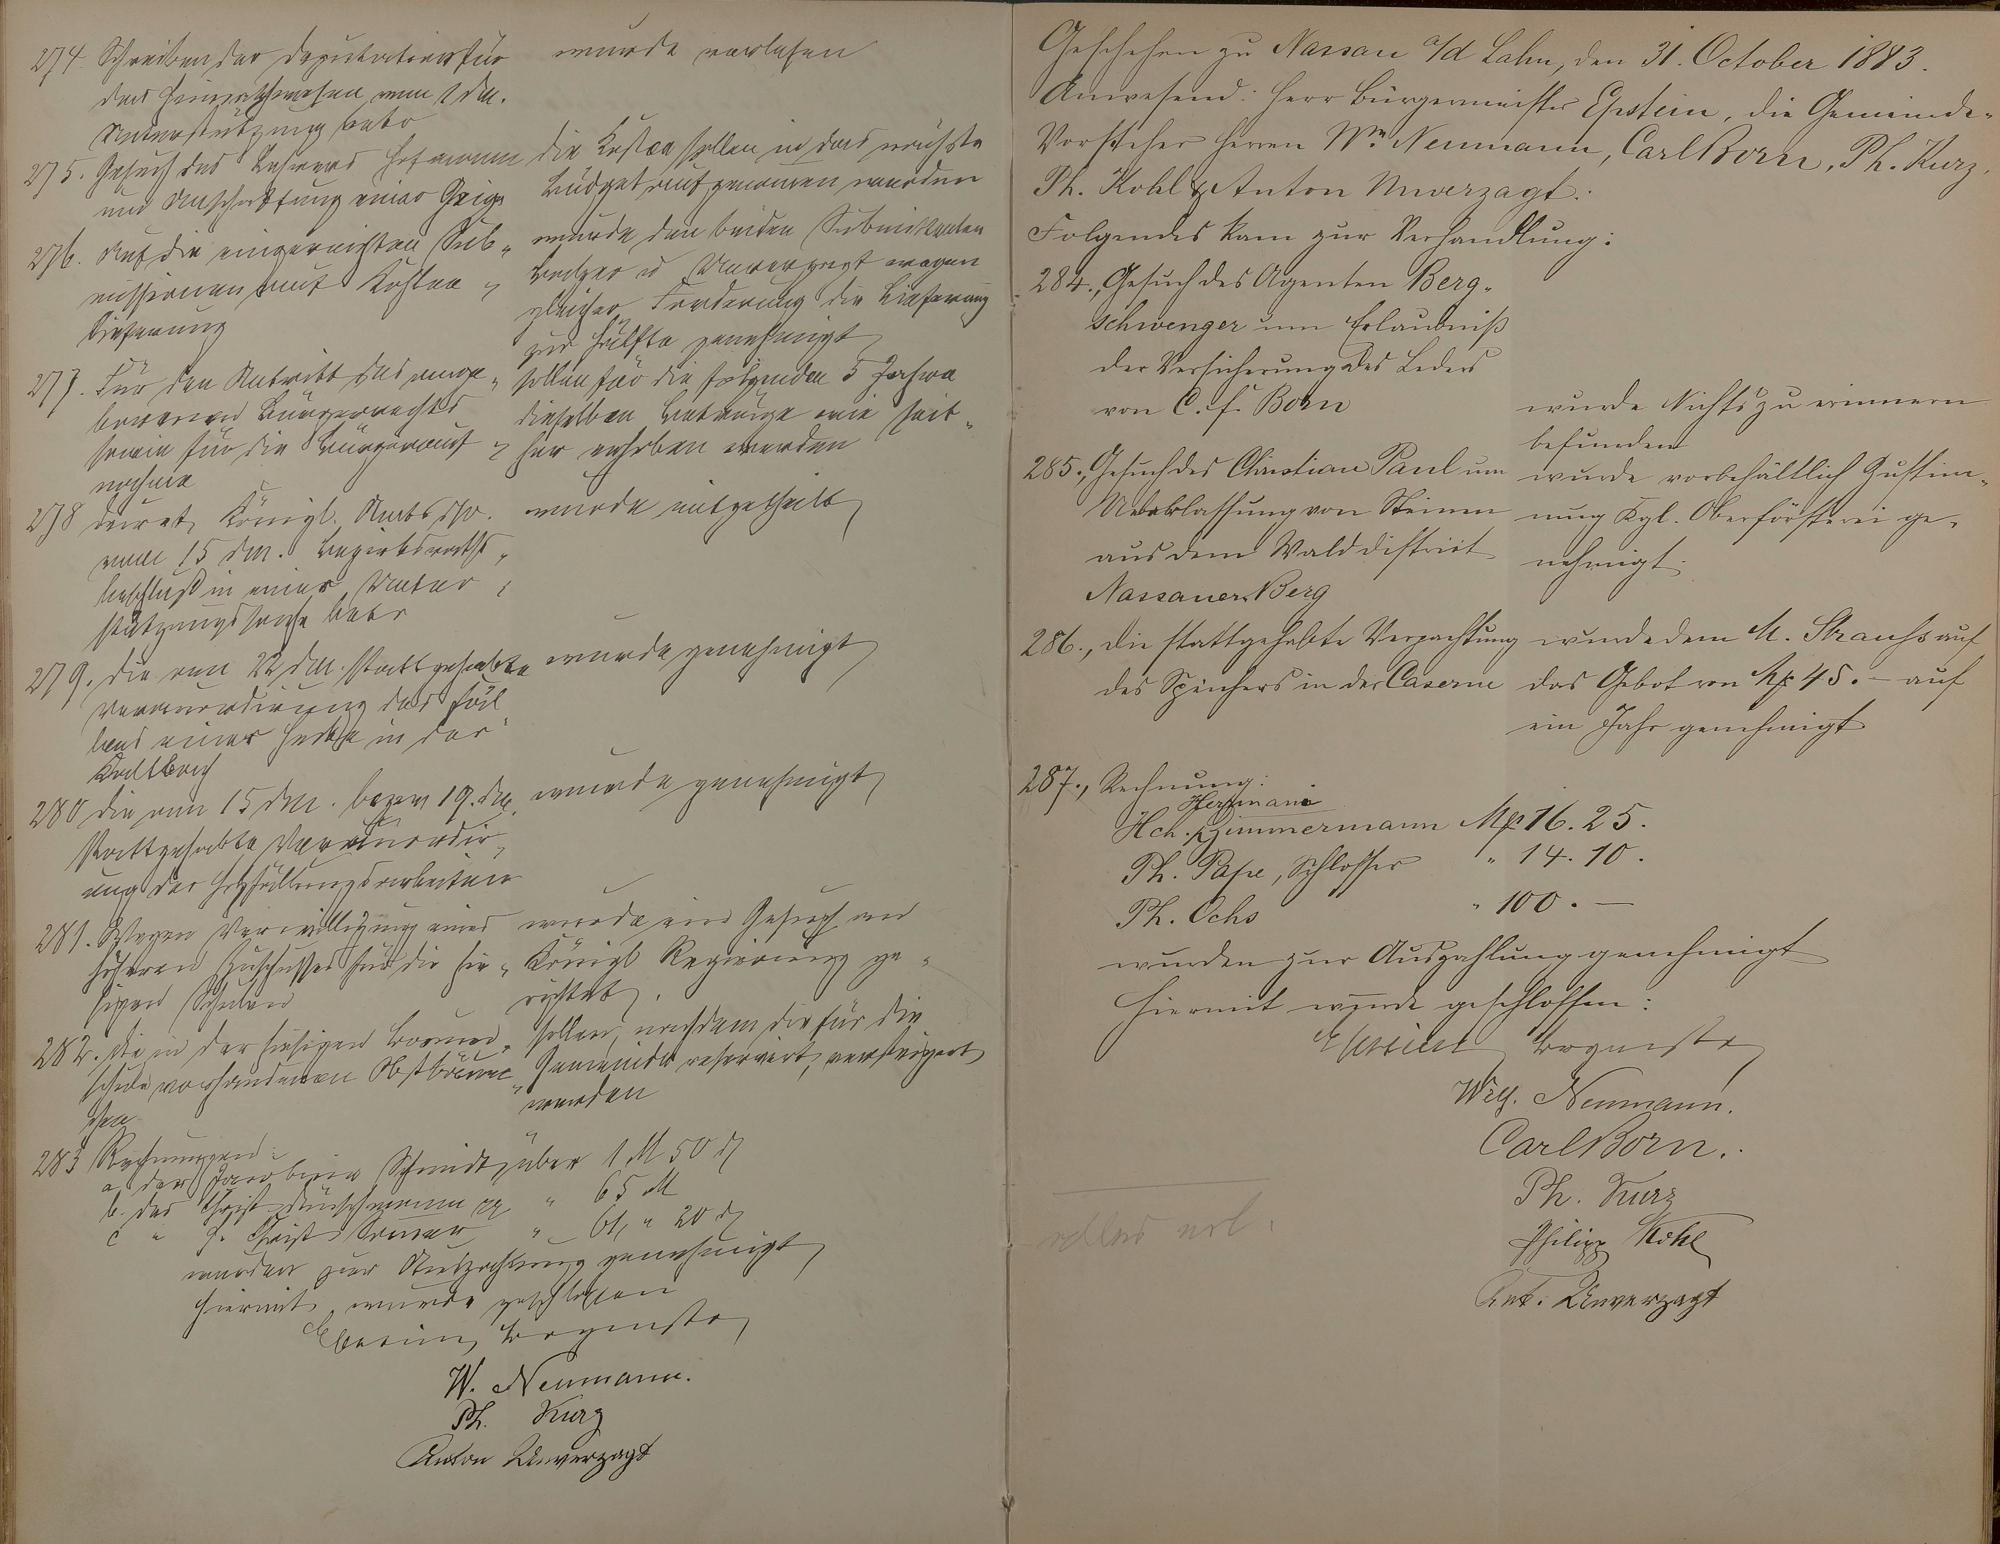 274. Schreiben der Deputation für
das Heimathwesen vom 1 dM.
Unterstützung betr
wurde verlesen
275. Gesuch des Lehrers Hofmann
um Anschaffung einer Geige
die Kosten sollen in das nächste
Büdget aufgenommen werden
276. Auf die eingereichten Sub-
missionen auf Kosten
Lieferung
wurde den beiden Submittenten
u Unverzagt wegen
gleicher Forderung die Lieferung
zur Hälfte genehmigt
277. Für den Antritt des ange-
borenen Bürgerrechts
sowie für die Bürgerauf-
nahme
sollen für die folgenden 5 Jahre
dieselben Beträge wie seit-
her erhoben werden
278 Decret Königl. Amts
vom 15 dM. Bezirksraths-
beschluß in einer Unter-
stützungssache betr
wurde mitgetheilt
279. die am 22 dM. stattgehabte
Veraccordirung des Fäl-
lens einer Hecke in der
Kaltbach
wurde genehmigt
280 die am 15 dM. bezw 19. dM.
stattgehabte Veraccordir-
ung der Holzfällungsarbeiten
wurde genehmigt
281. Wegen Verwilligung eines
höheren Zuschusses für die hie-
sigen Schulen
wurde ein Gesuch an
Königl Regierung ge-
richtet.
282. die in der hiesigen Baum-
schule vorhandenen Obstbäum-
chen
sollen, nachdem die für die
Gemeinde reservirt, versteigert
werden
283 Rechnungen:
a. der Jacobine Schmidt über 1 M 50 ₰
b. des Christ " 65 M
c " H. Christ " 61 " 20 ₰
wurden zur Auszahlung genehmigt
Hiermit wurde geschlossen
Epstein, Bürgermstr
W. Neumann.
Ph. Kurz
Anton Unverzagt
Geschehen zu Nassau a/d Lahn, den 31. October 1883.
Anwesend: Herr Bürgermeister Epstein, die Gemeinde-
Vorsteher Herren Wm Neumann, Carl Born, Ph. Kurz,
Ph. Kohl & Anton Unverzagt.
Folgendes kam zur Verhandlung:
284., Gesuch des Agenten Berg-
schwenger um Erlaubniß
der Versicherung des Leders
von C. f. Born
wurde Nichts zu erinnern
befunden
285., Gesuch des Christian Paul um
Ueberlassung von Steinen
aus dem Walddistrict
Nassauer Berg
wurde vorbehältlich Zustim-
mung Kgl. Oberförsterei ge-
nehmigt.
286., die stattgehabte Verpachtung
des Speichers in der Caserne
wurde dem M. Strauss auf
das Gebot von Mk 45.- auf
ein Jahr genehmigt
287., Rechnung:
Herrmann
Hch. Zimmermann Mk 16. 25.
Ph. Pape, Schlosser " 14. 10.
Ph. Ochs " 100. -
wurden zur Auszahlung genehmigt
Hiermit wurde geschlossen:
Epstein Bürgermstr
Wilh. Neumann.
Carl Born.
Ph. Kurz
Philipp Kohl
Ant. Unverzagt
alles erl.